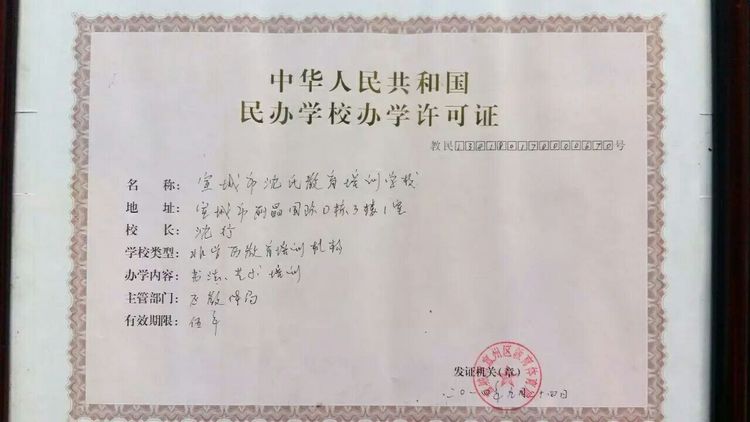 中华人民共和国
民办学校办学许可证
教民 号
名 称：宣城市沈氏教育培训学校
地 址：宣城市丽晶国际D栋3楼1室
校 长：沈行
学校类型：非学历教育培训机构
办学内容：书法、艺术培训
主管部门：区教体局
有效期限：伍年
宣州区教育体育
发证机关（章）